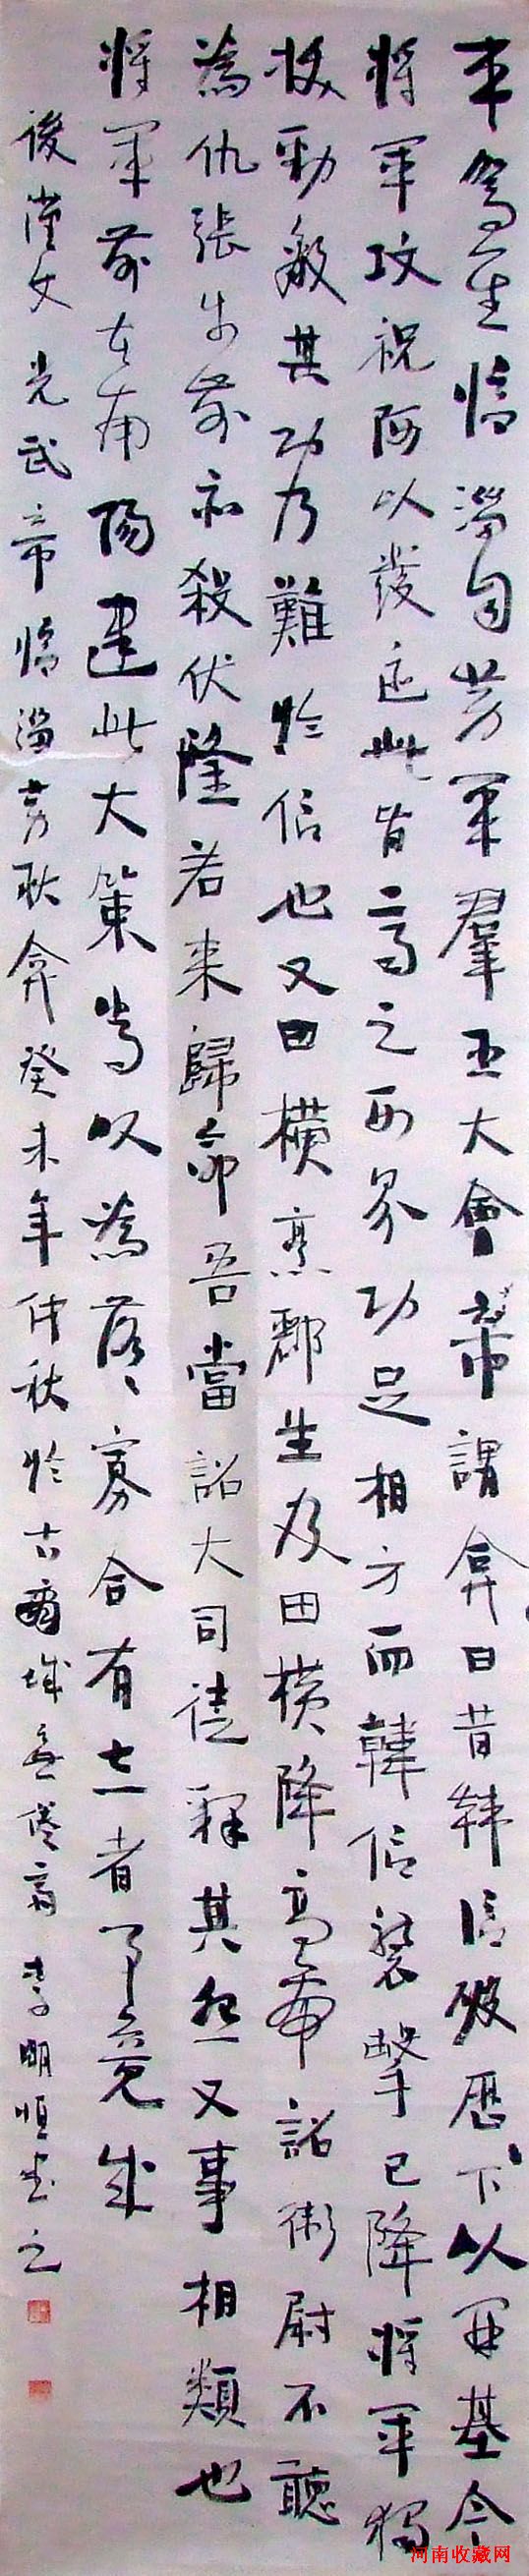 車駕至臨淄自勞軍羣臣大會帝謂弇曰昔韓信破歷下以開基今
將軍攻祝阿以發迹此皆齊之西界功足相方而韓信襲擊已降將軍獨
拔勁敵其功乃難於信也又田橫亨酈生及田橫降高帝詔衛尉不聽
為仇張步前亦殺伏隆若來歸命吾當詔大司徒釋其怨又事相類也
將軍前在南陽建此大策常以為落落寡合有志者事竟成
後漢文光武帝臨淄勞耿弇癸未年仲秋於古 城 齋李明恒書之
河南收藏网